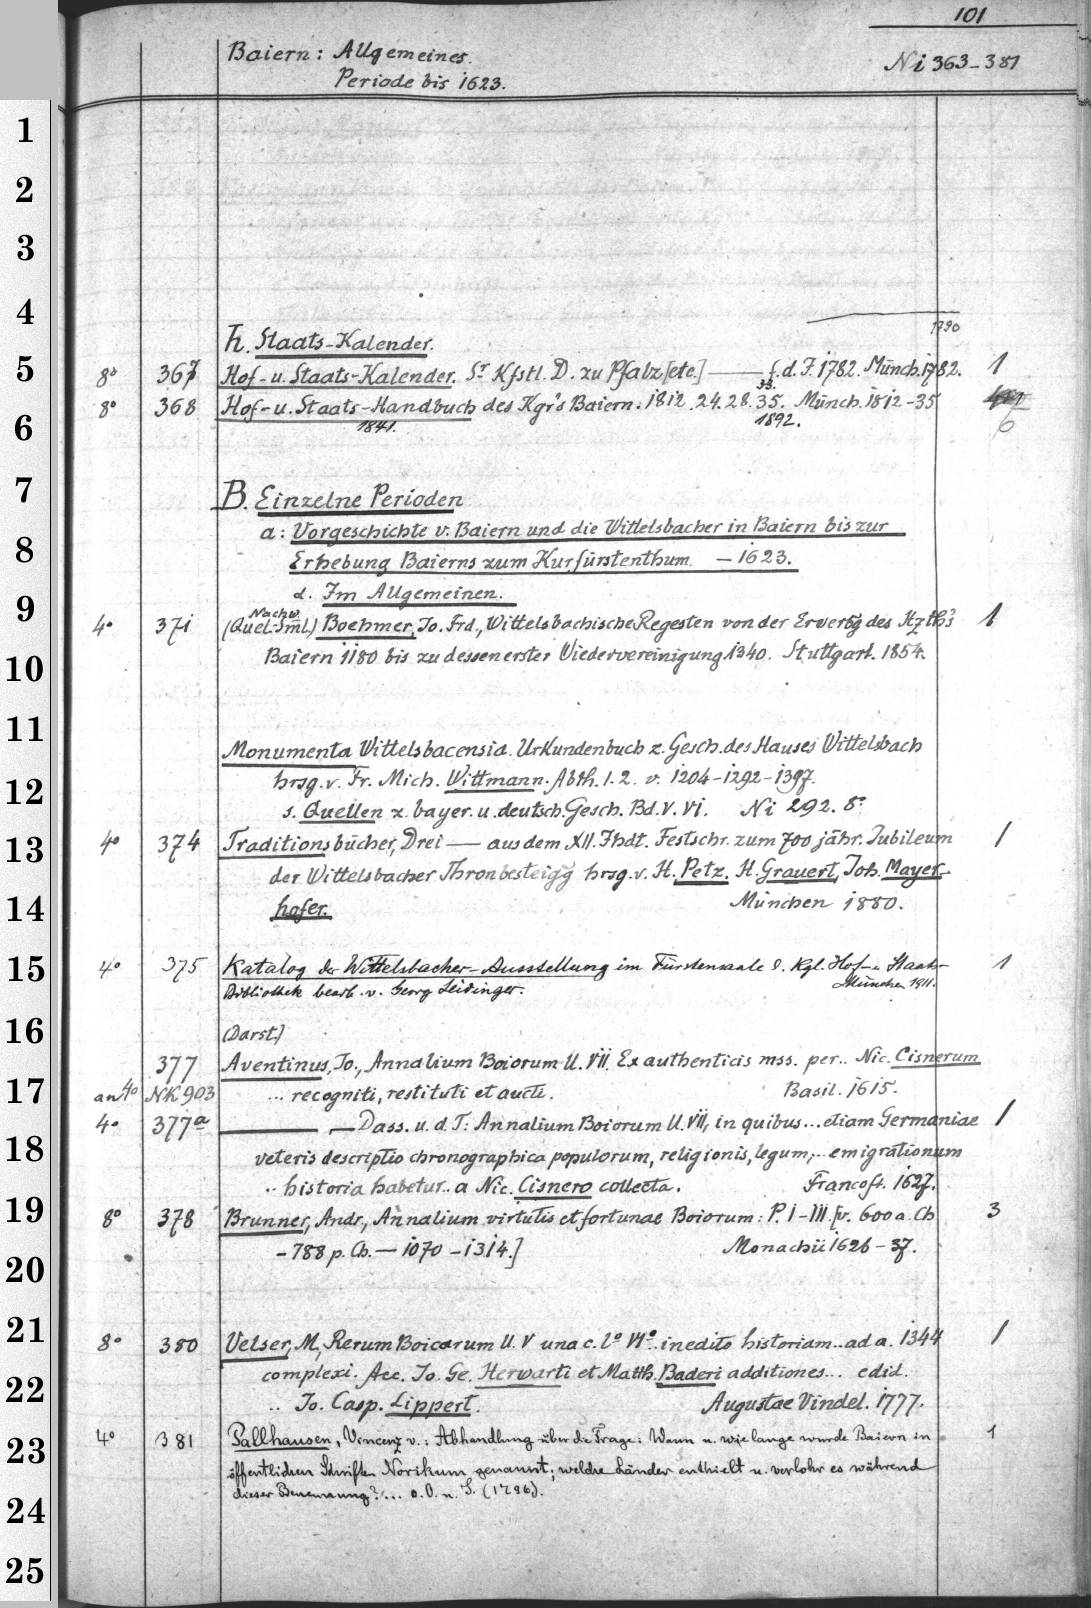 101
Baiern: Allgemeines.
Ni 363-381
Periode bis 1623.
1
2
3
4
5
6
7
8
9
10
11
12
13
14
15
16
17
18
19
20
21
22
23
24
25
h. Staats-Kalender.
1790
8° 367 Hof- u. Staats-Kalender. Sr Kfstl. D. zu Pfalz [etc.] —— f. d. J. 1782. Münch. 1782. 1
33.
8° 368 Hof- u. Staats-Handbuch des Kgr's Baiern. 1812. 24. 28. 35. Münch. 1812-35
1841. 1892. 6
B. Einzelne Perioden
a: Vorgeschichte v. Baiern und die Wittelsbacher in Baiern bis zur
Erhebung Baierns zum Kurfürstenthum. — 1623.
α. Im Allgemeinen.
Nachw.
4° 371 (Quel.-Sml.) Boehmer, Jo. Frd., Wittelsbachische Regesten von der Erverbg des Hzth's 1
Baiern 1180 bis zu dessen erster Wiedervereinigung 1340. Stuttgart. 1854.
Monumenta Wittelsbacensia. Urkundenbuch z. Gesch. des Hauses Wittelsbach
hrsg. v. Fr. Mich. Wittmann. Abth. 1. 2. v. 1204-1292-1397.
s. Quellen z. bayer. u. deutsch. Gesch. Bd. V. VI. Ni 292. 8°
4° 374 Traditionsbücher, Drei —— aus dem XII. Jhdt. Festschr. zum 700 jähr. Jubileum 1
der Wittelsbacher Thronbesteigg hrsg. v. H. Petz. H. Grauert, Joh. Mayer-
hofer. München 1880.
4° 375 Katalog der Wittelsbacher-Ausstellung im Fürstensaale d. Kgl. Hof- u. Staats- 1
Bibliothek bearb. v. Georg Leidinger. München 1911.
(Darst.)
377 Aventinus, Jo., Annalium Boiorum ll. VII. Ex authenticis mss. per.. Nic. Cisnerum
an 4° NK 903 ... recogniti, restituti et aucti. Basil. 1615.
4° 377a —— — Dass. u. d. T: Annalium Boiorum ll. VII, in quibus... etiam Germaniae 1
veteris descriptio chronographica populorum, religionis, legum,... emigrationum
.. historia habetur.. a Nic. Cisnero collecta. Francoft. 1627.
8° 378 Brunner, Andr., Annalium virtutis et fortunae Boiorum: P. I-III. [v. 600 a. Ch 3
- 788 p. Ch. — 1070 - 1314.] Monachii 1626-37.
8° 380 Velser, M., Rerum Boicarum ll. V una c. l° VI°. inedito historiam.. ad a. 1344 1
complexi. Acc. Jo. Ge. Herwarti et Matth. Baderi additiones... edid.
.. Jo. Casp. Lippert. Augustae Vindel. 1777.
4° 381 Pallhausen, Vincenz v.: Abhandlung über die Frage: Wann u. wie lange wurde Baiern in 1
öffentlichen Schriften Norikum genannt; welche Länder enthielt u. verlohr es während
dieser Benennung?... o. O. u. J. (1796).